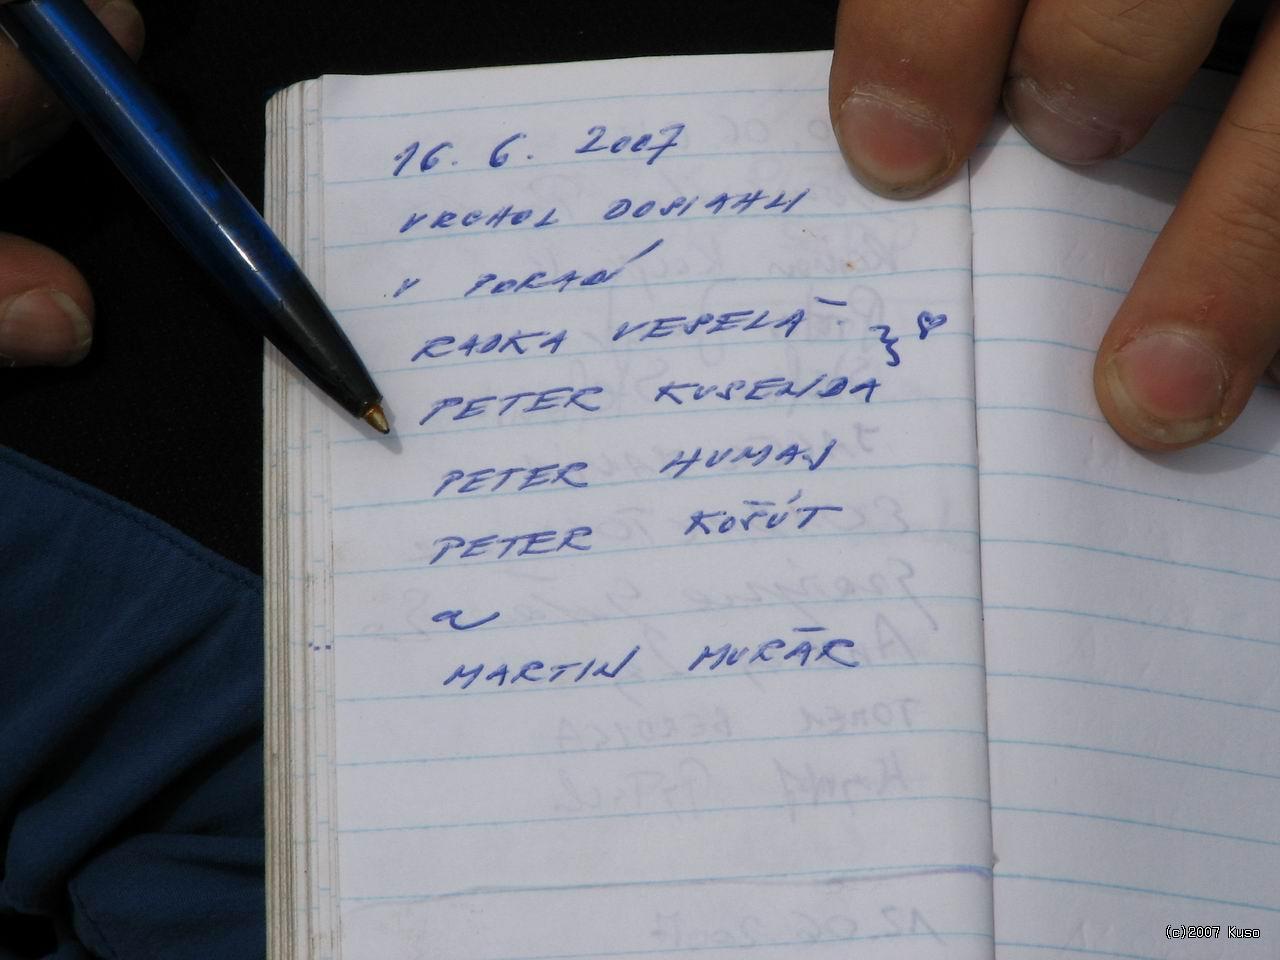 16. 6. 2007
VRCHOL DOSIAHLI
V PORADÍ
RADKA VESELÁ
PETER KUSENDA
PETER HUMAJ
PETER KOŠÚT
a
MARTIN MURÁR
(c)2007 Kuso